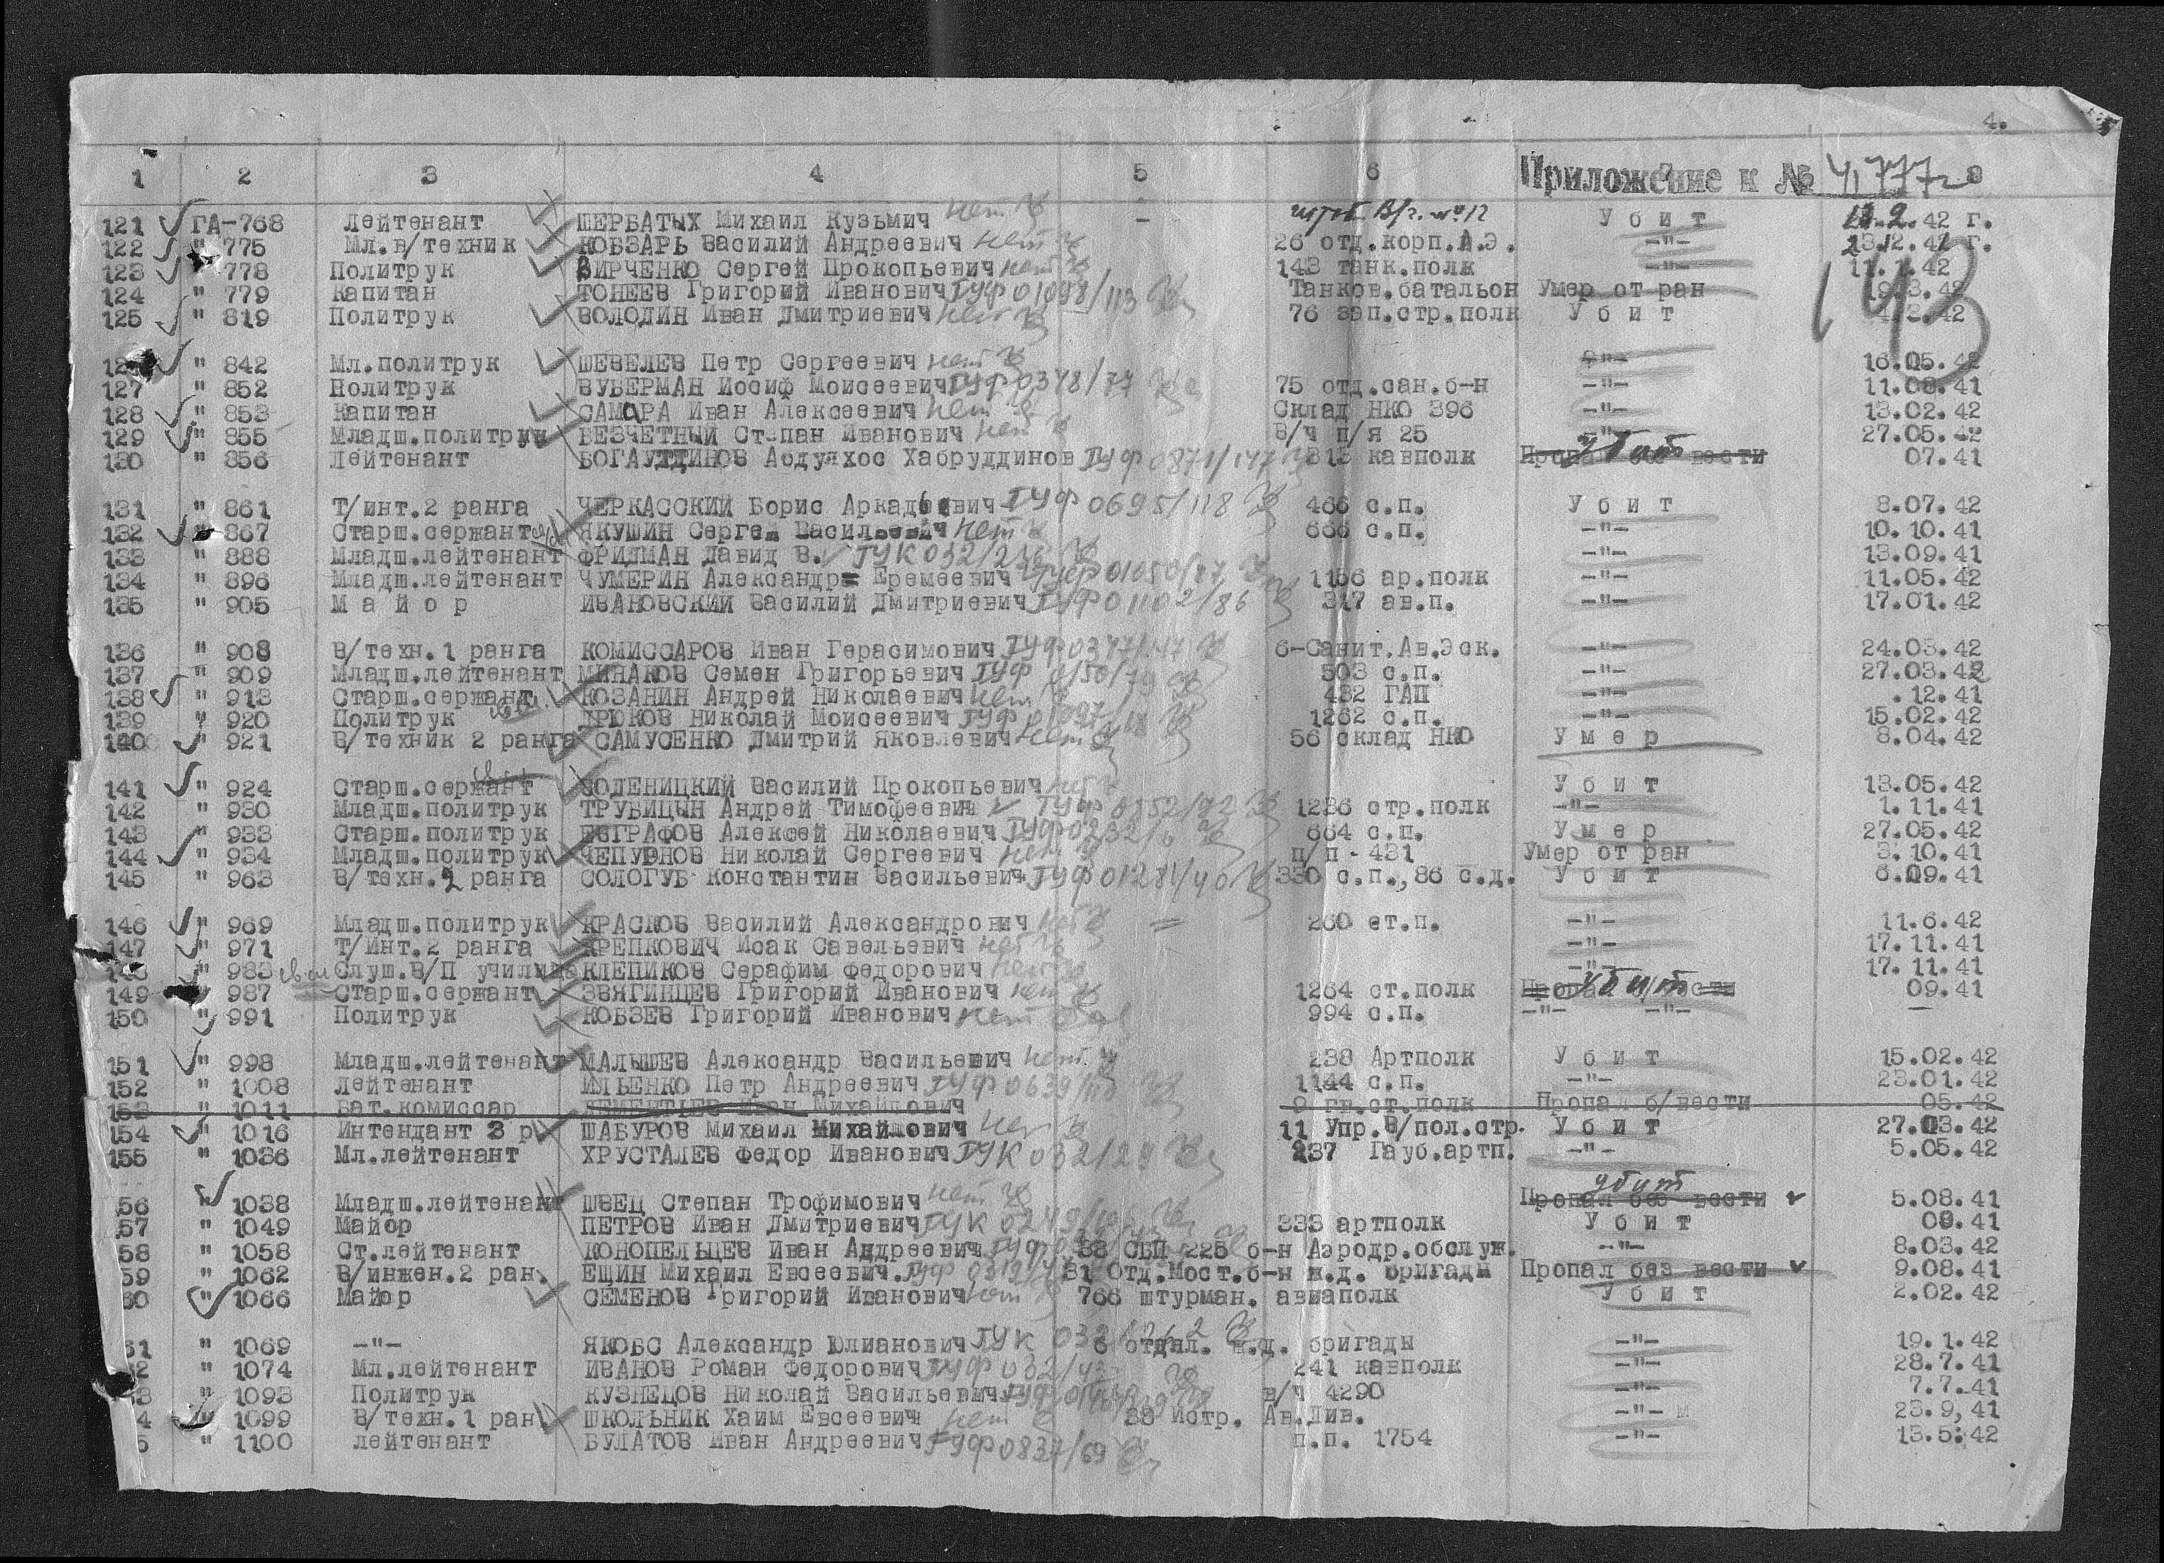 4.
Приложение к № 41777с
1 2 3 4 5 6 8
143
121 ГА-768 Лейтенант ЩЕРБАТЫХ Михаил Кузьмич нет - В/ч. №12 Убит 42 г.
122 " 775 Мл.в/техник КОБЗАРЬ Василий Андреевич нет 26 отд.корп.А.Э. -"- г.
123 778 Политрук ВИРЧЕНКО Сергей Прокопьевич нет 143 танк.полк -"- 11.1.42
124 " 779 Капитан ТОНЕЕВ Григорий Иванович ГУФ 01098/113 Танков.батальон Умер от ран
125 " 819 Политрук ВОЛОДИН Иван Дмитриевич нет 76 зап.стр.полк Убит
" 842 Мл.политрук ШЕВЕЛЕВ Петр Сергеевич нет -"- 16.05.42
127 " 852 Политрук ЗУБЕРМАН Иосиф Моисеевич ГУФ 0378/77 75 отд.сан.б-н -"- 11.08.41
128 " 853 Капитан САМАРА Иван Алексеевич нет Склад НКО 396 -"- 13.02.42
129 " 855 Младш.политрук БЕЗЧЕТНЫЙ Степан Иванович нет В/ч п/я 25 -"- 27.05.42
130 " 856 Лейтенант БОГАУТДИНОВ Абдулхос Хабруддинов ГУФ 0871/147 313 кавполк Пропал без вести убит 07.41
131 " 861 Т/инт.2 ранга ЧЕРКАССКИЙ Борис Аркадьевич ГУФ 0695/118 466 с.п. Убит 8.07.42
132 " 867 Старш.сержант ЯКУШИН Сергей Васильевич нет 666 с.п. -"- 10.10.41
133 " 888 Младш.лейтенант ФРИДМАН Давид В. ГУК 032/276 -"- 13.09.41
134 " 896 Младш.лейтенант ЧУМЕРИН Александр Еремеевич 1156 ар.полк -"- 11.05.42
135 " 905 Майор ИВАНОВСКИЙ Василий Дмитриевич ГУФ 01102/86 317 ав.п. -"- 17.01.42
136 " 908 В/техн.1 ранга КОМИССАРОВ Иван Герасимович ГУФ 0377/147 6-Санит.Ав.Эск. -"- 24.03.42
137 " 909 Младш.лейтенант МИНАКОВ Семен Григорьевич ГУФ 503 с.п. -"- 27.03.42
138 " 913 Старш.сержант КОЗАНИН Андрей Николаевич нет 432 ГАП -"- .12.41
139 " 920 Политрук ДРЮКОВ Николай Моисеевич ГУФ 1262 с.п. -"- 15.02.42
140 " 921 В/техник 2 ранга САМУСЕНКО Дмитрий Яковлевич нет 56 склад НКО Умер 8.04.42
141 " 924 Старш.сержант ЗОЛЕНИЦКИЙ Василий Прокопьевич нет Убит 13.05.42
142 " 930 Младш.политрук ТРУБИЦЫН Андрей Тимофеевич ГУФ 0552/72 1236 стр.полк -"- 1.11.41
143 " 933 Старш.политрук ЕВГРАФОВ Алексей Николаевич ГУФ 0232/6 664 с.п. Умер 27.05.42
144 " 934 Младш.политрук ЧЕПУРНОВ Николай Сергеевич нет п/п-431 Умер от ран 3.10.41
145 " 963 В/техн.2 ранга СОЛОГУБ Константин Васильевич ГУФ 01281/40 330 с.п.,86 с.д. Убит 6.09.41
146 " 969 Младш.политрук КРАСКОВ Василий Александрович нет 260 ст.п. -"- 11.6.42
147 " 971 Т/Инт.2 ранга КРЕПКОВИЧ Исак Савельевич нет -"- 17.11.41
" 983 Слуш.В/П училища КЛЕПИКОВ Серафим Федорович нет -"- 17.11.41
149 " 987 Старш.сержант ЗВЯГИНЦЕВ Григорий Иванович нет 1264 ст.полк убит 09.41
150 " 991 Политрук КОБЗЕВ Григорий Иванович нет 994 с.п. -"- -"- —
151 " 998 Младш.лейтенант МАЛЫШЕВ Александр Васильевич нет 238 Артполк Убит 15.02.42
152 " 1008 Лейтенант ИЛЬЕНКО Петр Андреевич ГУФ 0639 1144 с.п. -"- 23.01.42
153 " 1011 Бат.комиссар Иван Михайлович 9 гв.ст.полк Пропал б/вести 05.42
154 " 1016 Интендант 3 р ШАБУРОВ Михаил Михайлович нет 11 Упр.В/пол.стр. Убит 27.03.42
155 " 1036 Мл.лейтенант ХРУСТАЛЕВ Федор Иванович ГУК 032/29 237 Гауб.артп. -"- 5.05.42
56 " 1038 Младш.лейтенант ШВЕЦ Степан Трофимович нет Пропал без вести убит 5.08.41
57 " 1049 Майор ПЕТРОВ Иван Дмитриевич ГУК 333 артполк Убит 09.41
58 " 1058 Ст.лейтенант КОНОПЕЛЬЦЕВ Иван Андреевич ГУФ 38 СБП 225 б-н Аэродр.обслуж. -"- 8.03.42
59 " 1062 В/инжен.2 ран. ЕЩИН Михаил Евсеевич. ГУФ 31 Отд.Мост.б-н ж.д. бригады Пропал без вести 9.08.41
60 " 1066 Майор СЕМЕНОВ Григорий Иванович нет 766 штурман. авиаполк Убит 2.02.42
61 " 1069 -"- ЯКОБС Александр Юлианович ГУК 6 отдел. ж.д. бригады -"- 19.1.42
" 1074 Мл.лейтенант ИВАНОВ Роман Федорович ГУФ 032/43 241 кавполк -"- 28.7.41
" 1093 Политрук КУЗНЕЦОВ Николай Васильевич ГУФ в/ч 4290 -"- 7.7.41
4 " 1099 В/техн.1 ран ШКОЛЬНИК Хаим Евсеевич нет 38 Истр. Ав.Див. -"- 23.9,41
5 " 1100 Лейтенант БУЛАТОВ Иван Андреевич ГУФ 0837/69 п.п. 1754 -"- 13.5.42